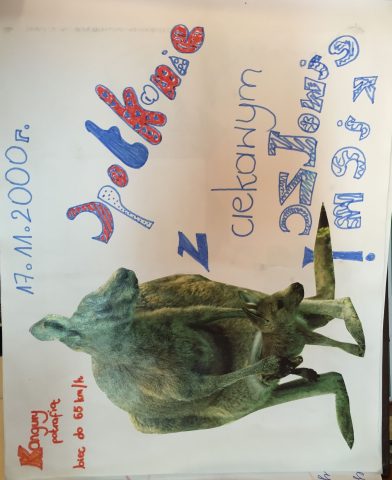 17.11.2000 r.
Spotkanie
z ciekawym
Kangury
potrafią
biec do 65 km/h